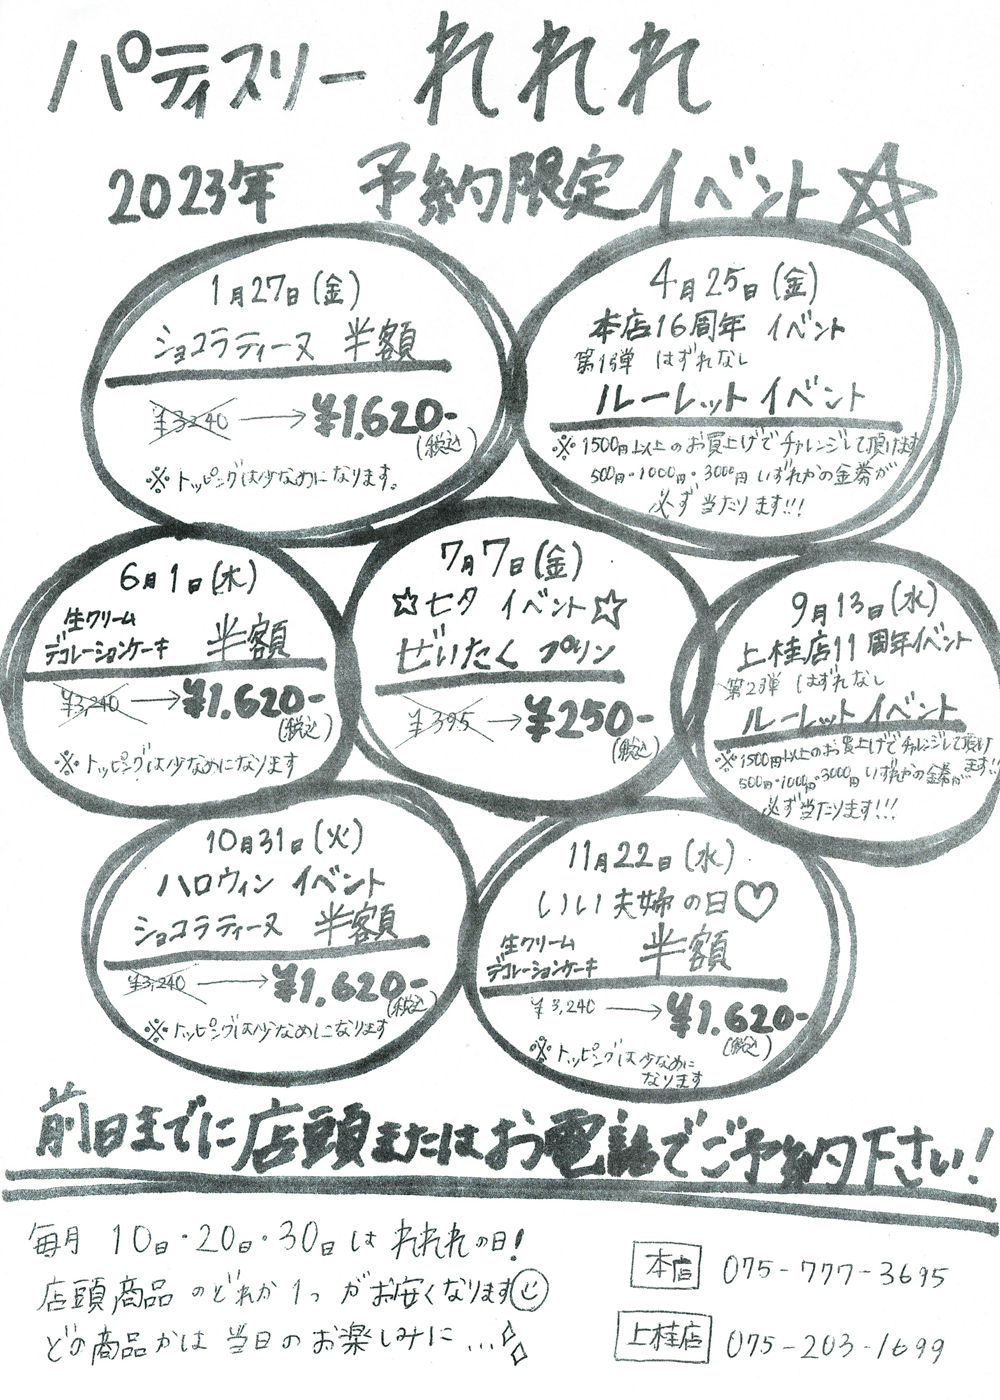 パティスリー れれれ
2023年 予約限定イベント☆
1月27日(金)
ショコラティーヌ 半額
¥3240 → ¥1.620-
(税込)
※トッピングは少なめになります。
4月25日(金)
本店16周年 イベント
第1弾 はずれなし
ルーレット イベント
※1500円以上のお買上げでチャレンジして頂けます
500円・1000円・3000円いずれかの金券が
必ず当たります!!!
6月1日(木)
生クリーム
デコレーションケーキ 半額
¥3,240 → ¥1.620-
(税込)
※トッピングは少なめになります
7月7日(金)
☆七夕 イベント☆
ぜいたく プリン
¥395 → ¥250-
(税込)
9月13日(水)
上桂店11周年イベント
第2弾 はずれなし
ルーレット イベント
※1500円以上のお買上げでチャレンジして頂け
ます!!
500円・1000円・3000円いずれかの金券が
必ず当たります!!!
10月31日(火)
ハロウィン イベント
ショコラティーヌ 半額
¥3,240 → ¥1.620-
(税込)
※トッピングは少なめになります
11月22日(水)
いい夫婦の日♡
生クリーム
デコレーションケーキ 半額
¥3,240 → ¥1.620-
(税込)
※トッピングは少なめに
なります
前日までに店頭またはお電話でご予約下さい!
毎月 10日・20日・30日は れれれの日!
店頭商品 のどれか1つがお安くなります
どの商品かは当日のお楽しみに...
本店 075-777-3695
上桂店 075-203-1699